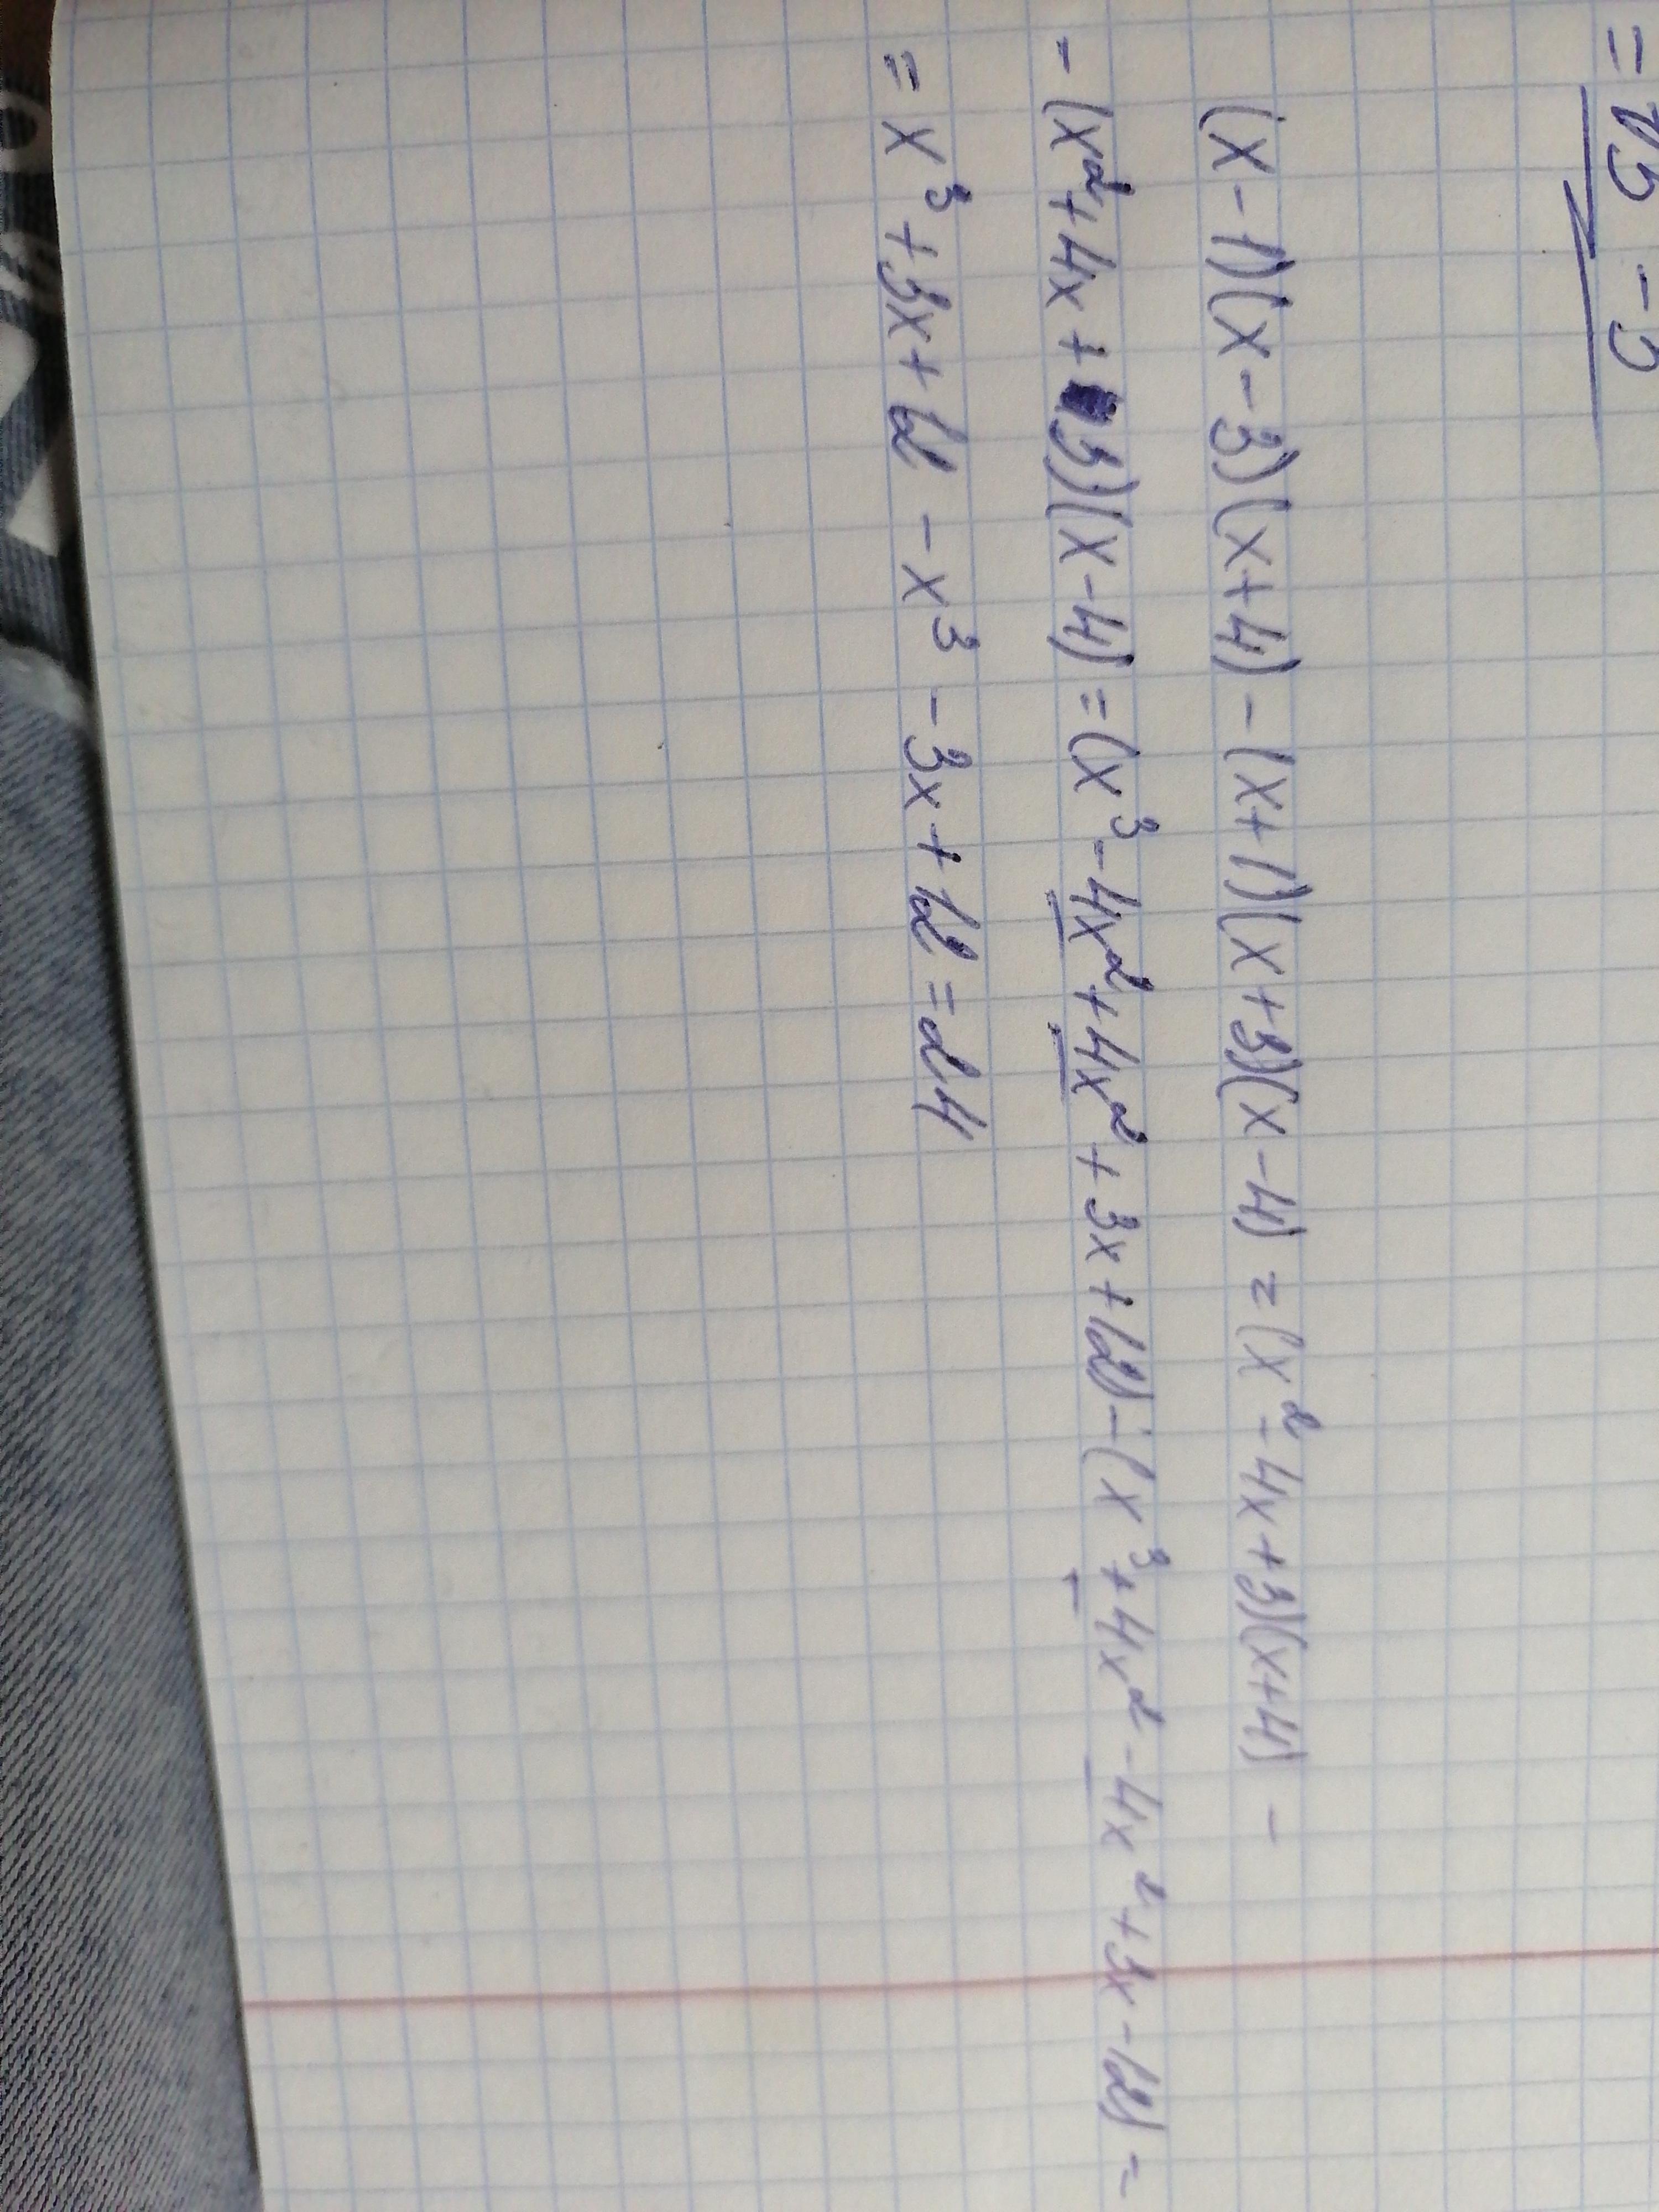 = √5 - 5
(x-1)(x-3)(x+4) - (x+1)(x+3)(x-4) = (x²-4x+3)(x+4) -
- (x²+4x+3)(x-4) = (x³-4x²+4x²+3x+12) - (x³+4x²-4x²+3x-12) =
= x³+3x+12 - x³ - 3x+12 = 24